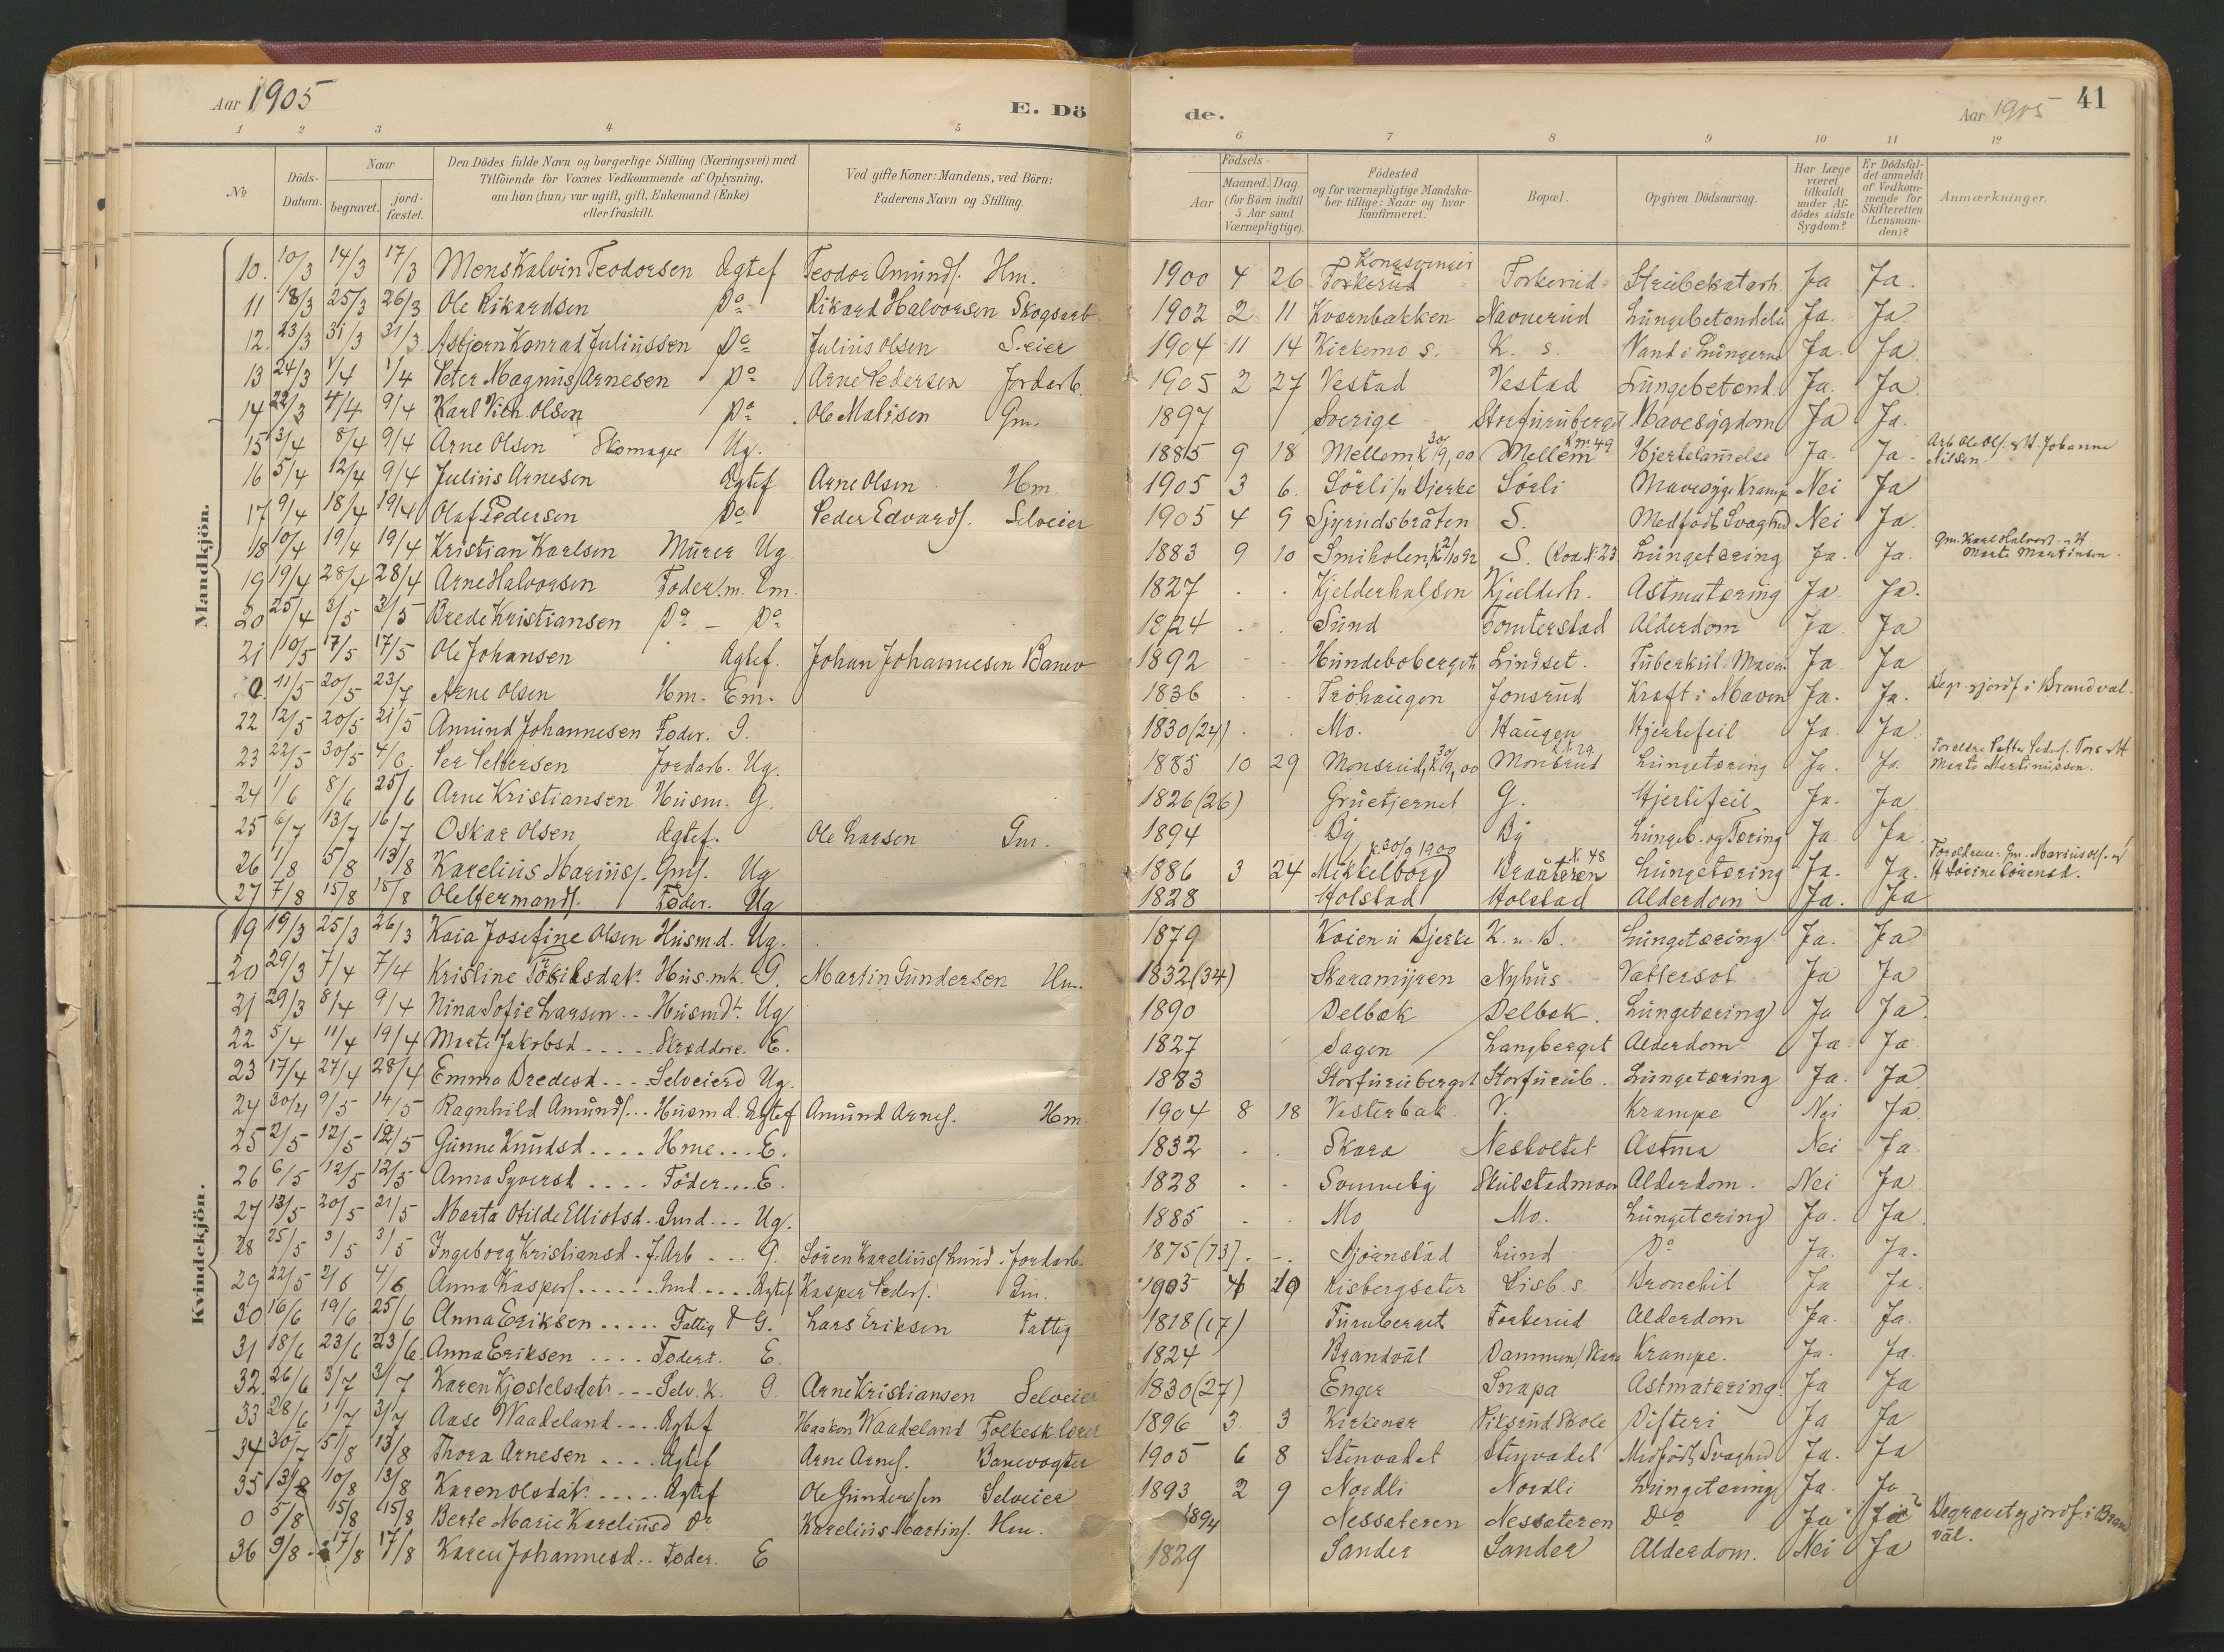 Aar 1905
E. Dö
1 2 3 4 5
No
Döds-Datum.
Naar
begravet.
jord-fæstet.
Den Dödes fulde Navn og borgerlige Stilling (Næringsvei) med
Tilföiende for Voxnes Vedkommende af Oplysning,
om han (hun) var ugift, gift, Enkemand (Enke)
eller fraskilt.
Ved gifte Koner: Mandens, ved Börn:
Faderens Navn og Stilling.
Mandkjön.
10. 10/3 14/3 17/3 Mons Kalvin Teodorsen Ægtef Teodor Amunds. Hm.
11 18/3 25/3 26/3 Ole Rikardsen Do Rikard Halvorsen Skogsarb.
12. 23/3 31/3 31/3 Asbjørn Konrad Juliussen Do Julius Olsen S.eier
13 24/3 1/4 1/4 Peter Magnus Arnesen Do Arne Pedersen Jordarb.
14 22/3 4/4 9/4 Karl Vilh. Olsen Do Ole Matisen Gm.
15 3/4 8/4 9/4 Arne Olsen Skomager Ug.
16 5/4 12/4 9/4 Julius Arnesen Ægtef Arne Olsen Hm.
17 9/4 18/4 19/4 Olaf Pedersen Do Peder Edvards. Selveier
18 10/4 19/4 19/4 Kristian Karlsen Murer Ug.
19 19/4 28/4 28/4 Arne Halvorsen Föder.m. Em.
20 25/4 3/5 3/5 Brede Kristiansen Do - Do
21 10/5 17/5 17/5 Ole Johansen Ægtef. Johan Johannesen Banev
0. 11/5 20/5 23/7 Arne Olsen Hm. Em.
22 12/5 20/5 21/5 Amund Johannesen Föder. G.
23 22/5 30/5 4/6 Per Pettersen Jordarb. Ug.
24 1/6 8/6 25/6 Arne Kristiansen Husm. G.
25 6/7 13/7 16/7 Oskar Olsen Ægtef. Ole Larsen Gm.
26 1/8 5/8 13/8 Karelius Marius. Gms. Ug
27 7/8 15/8 15/8 Ole Hermands. Föder. Ug
Kvindekjön.
19 19/3 25/3 26/3 Kaia Josefine Olsen Husm.d. Ug.
20 29/3 7/4 7/4 Kristine Tökilsdatr. Hus.mk. G. Martin Gundersen Hm.
21 29/3 8/4 9/4 Nina Sofie Larsen.. Husmdt. Ug
22 5/4 11/4 19/4 Marte Jakobsd..... Skræddere. E.
23 17/4 27/4 28/4 Emma Bredesd... Selveierd Ug.
24 30/4 9/5 14/5 Ragnhild Amunds... Husm d. Ægtef Amund Arnes. Hm.
25 2/5 12/5 12/5 Gunne Knudsd.... Hme... E.
26 6/5 12/5 12/5 Anna Syversd.... Föder.... E.
27 13/5 20/5 21/5 Marta Otilde Elliotsd. Gmd... Ug.
28 25/5 3/5 3/5 Ingeborg Kristiansd. J.Arb... G. Sören Karelius. Lund. Jordarb.
29 22/5 2/6 4/6 Anna Kaspers...... Gmd..... Ægtef Kasper Peders. Gm.
30 16/6 19/6 25/6 Anna Eriksen..... Fattig G. Lars Eriksen Fattig
31 18/6 23/6 23/6. Anna Eriksen.... Föder. E.
32. 26/6 3/7 3/7 Karen Kjøstelsdatr... Selv.k. G. Arne Kristiansen Selveier
33 28/6 1/7 3/7 Aase Waadeland.... Ægtef Haakon Waadeland Folkesk.lærer
34 30/7 5/8 13/8 Thora Arnesen.... Ægtef Arne Arnes. Banevogter
35 10/8 13/8 Karen Olsdatr..... Ægtef Ole Gundersen Selveier
0 5/8 15/8 15/8 Berte Marie Kareliusd Do Karelius Martins. Hm.
36 9/8 17/8 17/8 Karen Johannesd.. Föder. E
de.
Aar 1905
41
6 7 8 9 10 11 12
Aar
Födsels-
Maaned. Dag.
(for Börn indtil
5 Aar samt
Værnepligtige).
Födested
og for værnepligtige Mandska-
ber tillige: Naar og hvor
konfirmeret.
Bopæl.
Opgiven Dödsaarsag.
Har Læge
været
tilkaldt
under Af-
dödes sidste
Sygdom?
Er Dödsfal-
det anmeldt
af Vedkom-
mende for
Skifteretten
(Lensman-
den)?
Anmærkninger.
1900 4 26 Kongsvinger Torkerud Torkerud Strubekatarh. Ja Ja.
1902 2 11 Kværnbakken Navnerud Lungebetændelse Ja. Ja
1904 11 14 Kirkemo s. K. s. Vand i Lungerne Ja. Ja.
1905 2 27 Vestad Vestad Lungebetænd. Ja. Ja
1897 Sverige Storfuruberget Mavesygdom Ja Ja.
1885 9 18 Mellem, k 30/9,00 Mellem K nr. 49 Hjertelammelse Ja. Ja. Arb Ole Ols. & H. Johanne
Nilsen.
1905 3 6. Sörli u Djerke Sörli Mavesyge Krampe Nei Ja
1905 4 9 Sjyrudsbråten S. Medfödt Svaghed Nei Ja.
1883 9 10 Smiholen, k 2/10 92 S. Lungetæring Ja. Ja. Gm. Karl Halvors. & H
Marte Martinsen.
1827 . . Kjelderhalsen Kjelderh. Astmatæring Ja. Ja.
1824 . . Sund Tomterstad Alderdom Ja. Ja
1892 - - Hundeboberget Lindset. Tuberkul. Mave Ja. Ja
1836 . Tröhaugen Jonsrud Kræft i Maven Ja. Ja. Begr. & jordf. i Brandval.
1830(24) . . Mo. Haugen Hjertefeil Ja. Ja.
1885 10 29 Monsrud, k 30/9,00 Monsrud K. N. 29. Lungetæring Ja. Ja. Forældre Petter Peders. Tors. & H
Marte Martinussen.
1826(26) Gruetjernet G. Hjertefeil Ja. Ja
1894 By By Lungeb. og Tæring Ja. Ja
1886 3 24 Mikkelborg k. 30/9 1900 Bråteren N. 48 Lungetæring Ja. Ja. Forældrene: Gm. Marius Ols. &
H Sörine Sörensd.
1828 Holstad Holstad Alderdom Ja. Ja
1879 Koien u Djerke K. u. D. Lungetæring Ja. Ja
1832(34) Skaramyren Nyhus Vattersot Ja Ja
1890 Delbæk Delbæk. Lungetæring Ja Ja.
1827 Sagen Langberget Alderdom Ja Ja
1883 Storfuruberget Storfurub. Lungetæring Ja. Ja.
1904 8 18 Vesterbak V. Krampe Nei Ja.
1832 . . Skara Nesholtet Astma Nei Ja
1828 . . Svenneby Skulstadmoen Alderdom. Nei Ja
1885 . . Mo Mo. Lungetæring Ja. Ja.
1875(73). -. Bjørnstad Lund Do Ja. Ja.
1905 4 19 Risbergseter Risb. s. Bronchit Ja Ja.
1818(17) Furuberget Torkerud Alderdom Ja. Ja.
1824 Brandvål Dammen/Skara Krampe. Ja. Ja.
1830(27) Enger Snapa Astmatæring. Ja Ja
1896 3. 3 Kirkener Piksrud Skole Difteri Ja Ja
1905 6 8 Stenvadet Stenvadet Medfödt Svaghed Ja. Ja
1893 2 9 Nordli Nordli Lungetæring Ja. Ja
1894 Nessæteren Nessæteren Do Ja Ja Begravet & jordf. i Brand
vål.
1829 Sander Sander Alderdom. Nei Ja